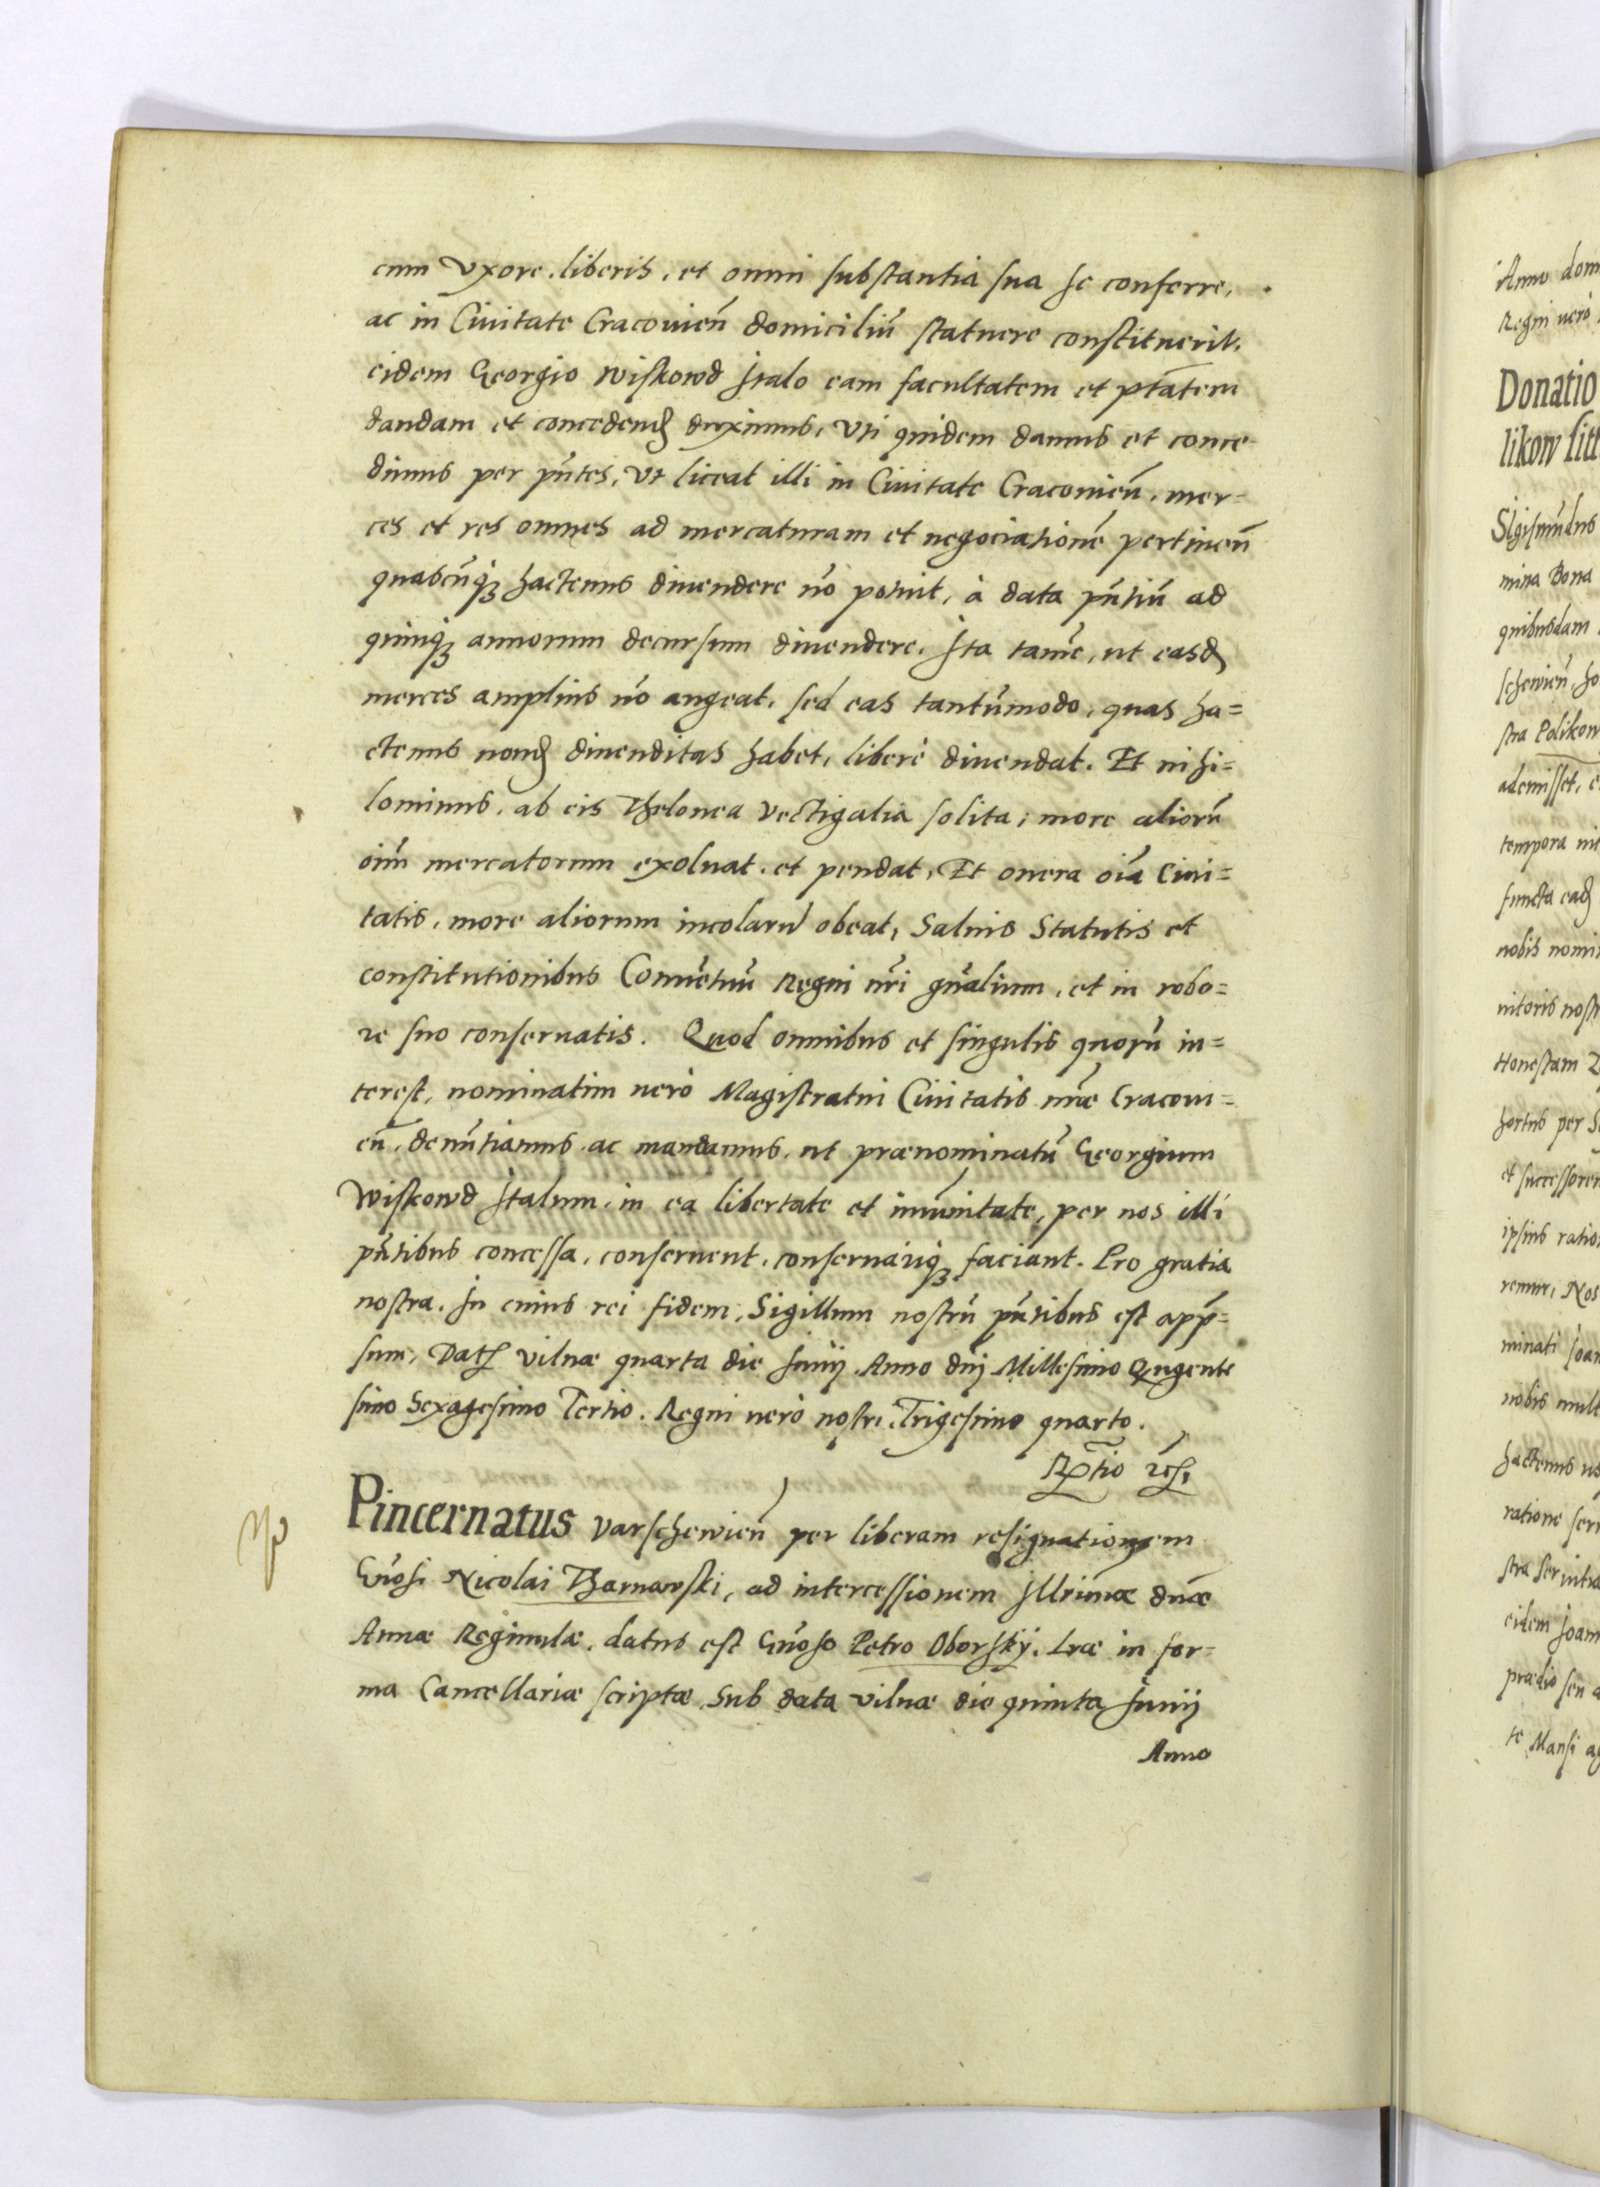 cum vxore, liberis, et omni substantia sua se conferre,
ac in Ciuitate Cracouien̄ domiciliū statuere constituerit,
eidem Georgio Wiskowd Italo eam facultatem et ptātem
dandam et concedend duximus, vti quidem damus et conce-
dimus per pn̄tes, vt liceat illi in Ciuitate Cracouien̄, mer-
ces et res omnes ad mercaturam et negociationē pertinen̄
quascūq; hactenus diuendere nō potuit, à data pn̄tiū ad
quinq; annorum decursum diuendere. Ita tamē, ut easd
merces amplius nō augeat, sed eas tantūmodo, quas ha=
ctenus nond diuenditas habet, liberè diuendat. Et nihi=
lominus, ab eis Thelonea vectigalia solita, more aliorū
oīm mercatorum exoluat, et pendat, Et onera oīa Ciui=
tatis, more aliorum incolarū obeat, Saluis Statutis et
constitutionibus Conuētuū Regni nr̄i gn̄alium, et in robo=
re suo conseruatis. Quod omnibus et singulis quorū in=
terest, nominatim uerò Magistratui Ciuitatis nr̄æ Cracoui=
en̄, denūtiamus ac mandamus, ut prænominatū Georgium
Wiskowd Italum, in ea libertate et imūnitate, per nos illi
pn̄tibus concessa, conseruent, conseruariq; faciant. Pro gratia
nostra. In cuius rei fidem, Sigillum nostrū pn̄tibus est app̄=
sum, Dat vilnæ quarta die Junij Anno dnī Millesimo Qngente
simo Sexagesimo Tertio. Regni uerò nostri Trigesimo quarto.
Pincernatus Varschewien̄ per liberam resignationem
Gn̄osi Nicolai Tharnawski, ad intercessionem Illrimæ dn̄æ
Annæ Reginulæ, datus est Gn̄oso Petro Oborskij, Lræ in for-
ma Cancellariæ scriptæ Sub data vilnæ die quinta Junij
Anno
Anno
Regni uerò
Donatio
likow
Sigismūdus
mina Bona
quibusdam
schewien̄
stra Polikow
ademisset,
tempora
functa ead
nobis
nitoris
Honestam
hortus per
et successorem
ipsius
Nos
minati
nobis
hactenus
ratione
stra
eidem
prædio seu
te Mansi